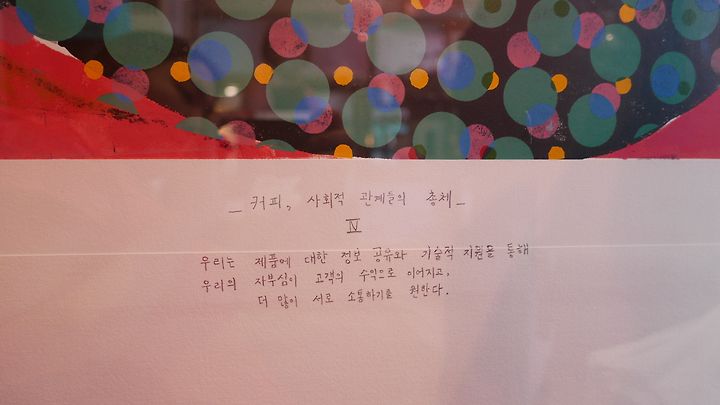 _ 커피, 사회적 관계들의 총체 _
IV
우리는 제품에 대한 정보 공유와 기술적 지원을 통해
우리의 자부심이 고객의 수익으로 이어지고,
더 많이 서로 소통하기를 원한다.